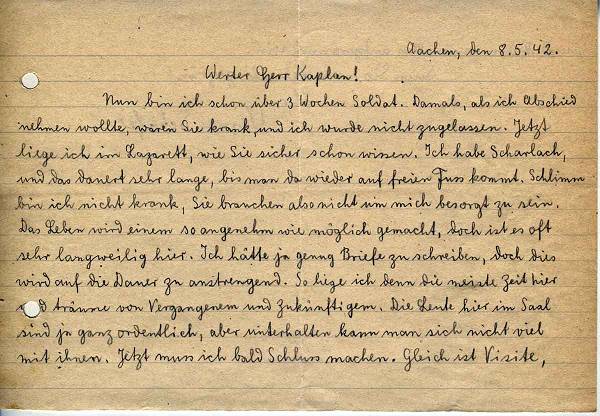 Aachen, den 8.5.42.
Werter Herr Kaplan!
Nun bin ich schon über 3 Wochen Soldat. Damals, als ich Abschied
nehmen wollte, waren Sie krank, und ich wurde nicht zugelassen. Jetzt
liege ich im Lazarett, wie Sie sicher schon wissen. Ich habe Scharlach,
und das dauert sehr lange, bis man da wieder auf freien Fuss kommt. Schlimm
bin ich nicht krank, Sie brauchen also nicht um mich besorgt zu sein.
Das Leben wird einem so angenehm wie möglich gemacht, doch ist es oft
sehr langweilig hier. Ich hätte ja genug Briefe zu schreiben, doch dies
wird auf die Dauer zu anstrengend. So liege ich denn die meiste Zeit hier
d träume von Vergangenem und Zukünftigem. Die Leute hier im Saal
sind ja ganz ordentlich, aber unterhalten kann man sich nicht viel
mit ihnen. Jetzt muss ich bald Schluss machen. Gleich ist Visite,